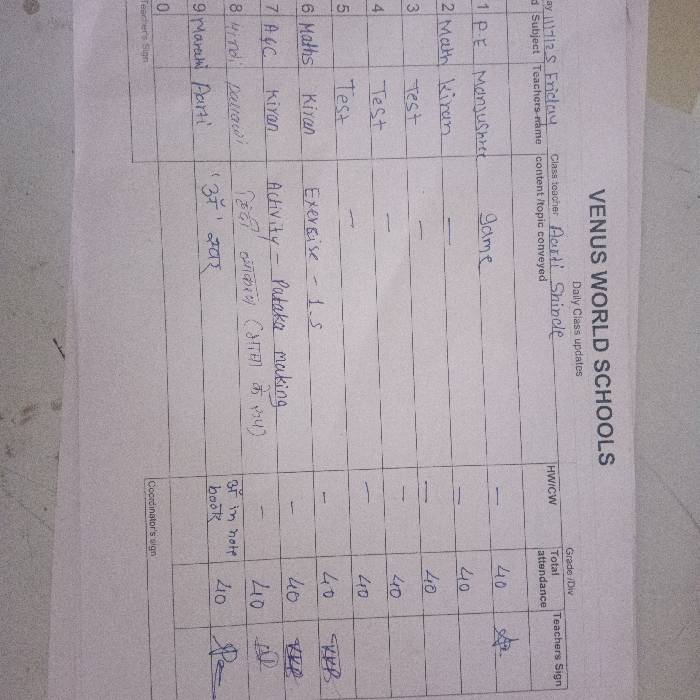 VENUS WORLD SCHOOLS
Daily Class updates
ay 11/7/25 Friday Class teacher Aarti Shinde Grade /Div
d Subject Teachers name content /topic conveyed HW/CW Total attendance Teachers Sign
1 P.E Manjushree game - 40
2 Math Kiran - - 40
3 Test - - 40
4 Test - - 40
5 Test - - 40
6 Maths Kiran Exercise - 1.5 - 40 KKB
7 A&C Kiran Activity - Pataka making - 40 KKB
8 Hindi Pallavi - 40
9 Marathi Aarti 'अं' स्वर अं in note book 40
0
Teacher's Sign Coordinator's sign